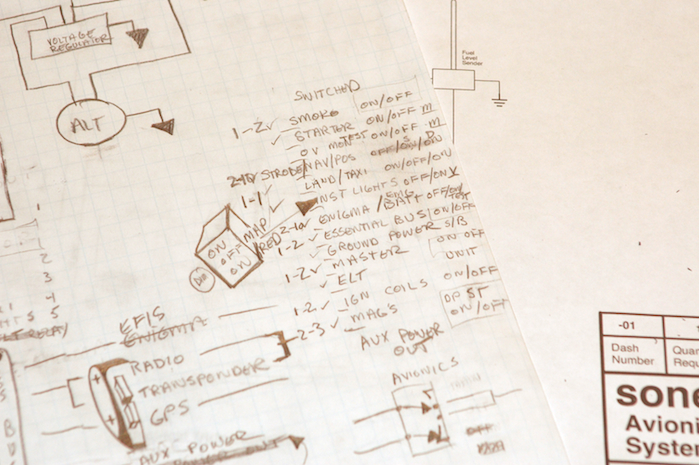 VOLTAGE
REGULATER
ALT
Fuel
Level
Sender
SWITCHED
1-2✓ SMOKE ON/OFF
✓ STARTER ON/OFF M
OV MON TEST ON/OFF M
2-10 STROBE/NAV/POS OFF/ON/ON
1-1 ✓ LAND/TAXI ON/OFF/ON
INST LIGHTS OFF/ON
✓ ENIGMA/EMG BATT OFF/ON/TEST
1-2 ✓ ESSENTIAL BUS ON/OFF
✓ GROUND POWER S/B
1-2✓ MASTER ON OFF
✓ ELT UNIT
1-2✓ IGN COILS ON/OFF
2-3✓ MAGS DPST
ON/OFF
MAP
/RED
ON
OFF
ON
2
3
4
5
EFIS
ENIGMA
RADIO
TRANSPONDER
GPS
AUX POWER
AUX POWER
OUT
AVIONICS
OFF
B
D
-01
Dash
Number
Quan
Requ
sone
Avioni
Syster